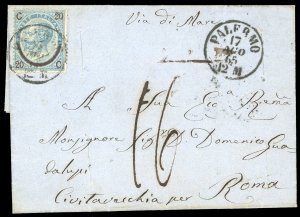 Via di Mare
C 20 20 C
PALERMO
17
AGO
65
12 M
12 M
A Sua Ecc.a R.ma
16
Monsignore Sig.r D. Domenico Gua
dalupi
Civitavecchia per Roma